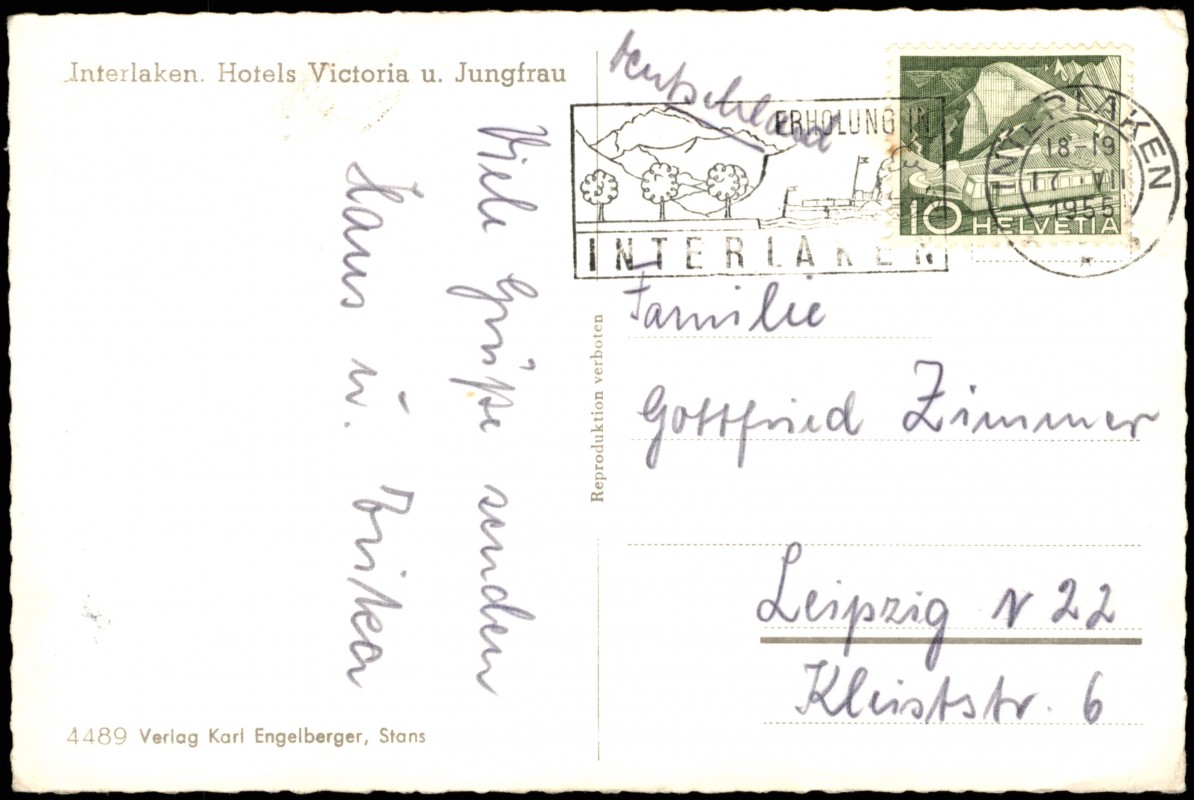 Interlaken. Hotels Victoria u. Jungfrau
Viele Grüße senden
Hans u.
4489 Verlag Karl Engelberger, Stans
Reproduktion verboten
Deutschland
ERHOLUNG IN
INTERLAKEN
10 HELVETIA
INTERLAKEN
18-19
17 VII
1955
Familie
Gottfried Zimmer
Leipzig N 22
Kleiststr. 6